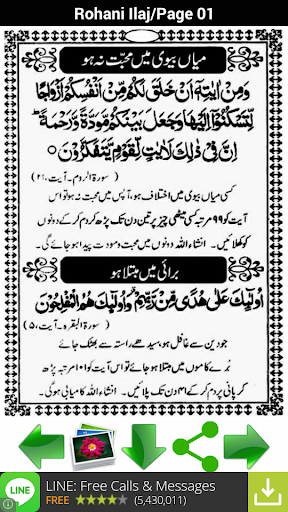 Rohani Ilaj/Page 01
میاں بیوی میں محبّت نہ ہو
وَمِنْ اٰيٰتِهٖۤ اَنْ خَلَقَ لَكُمْ مِّنْ اَنْفُسِكُمْ اَزْوَاجًا
لِّتَسْكُنُوْۤا اِلَيْهَا وَجَعَلَ بَيْنَكُمْ مَّوَدَّةً وَّرَحْمَةً ؕ
اِنَّ فِيْ ذٰلِكَ لَاٰيٰتٍ لِّقَوْمٍ يَّتَفَكَّرُوْنَ ○
(سورۃ الروم۔ آیت،۲۱)
کسی میاں بیوی میں اختلاف ہو، آپس میں محبت نہ ہو تو اس
آیت کو ۹۹ مرتبہ کسی میٹھی چیز پر تین دن تک پڑھ کر دم کر کے دونوں
کو کھلائیں۔ انشاء اللہ دونوں میں محبت و مودت پیدا ہو جائے گی۔
برائی میں مبتلا ہو
اُولٰٓئِكَ عَلٰى هُدًى مِّنْ رَّبِّهِمْ وَاُولٰٓئِكَ هُمُ الْمُفْلِحُوْنَ
(سورۃ البقرہ۔ آیت،۵)
جو دین سے غافل ہو، سیدھے راستہ سے بھٹک جائے
بُرے کاموں میں مبتلا ہو جائے تو اس آیت کو ۱۰۱ مرتبہ پڑھ
کر پانی پر دم کر کے ۴۱ دن تک پلائیں۔ انشاء اللہ کامیابی ہو گی۔
LINE
LINE: Free Calls & Messages
FREE (5,430,011)